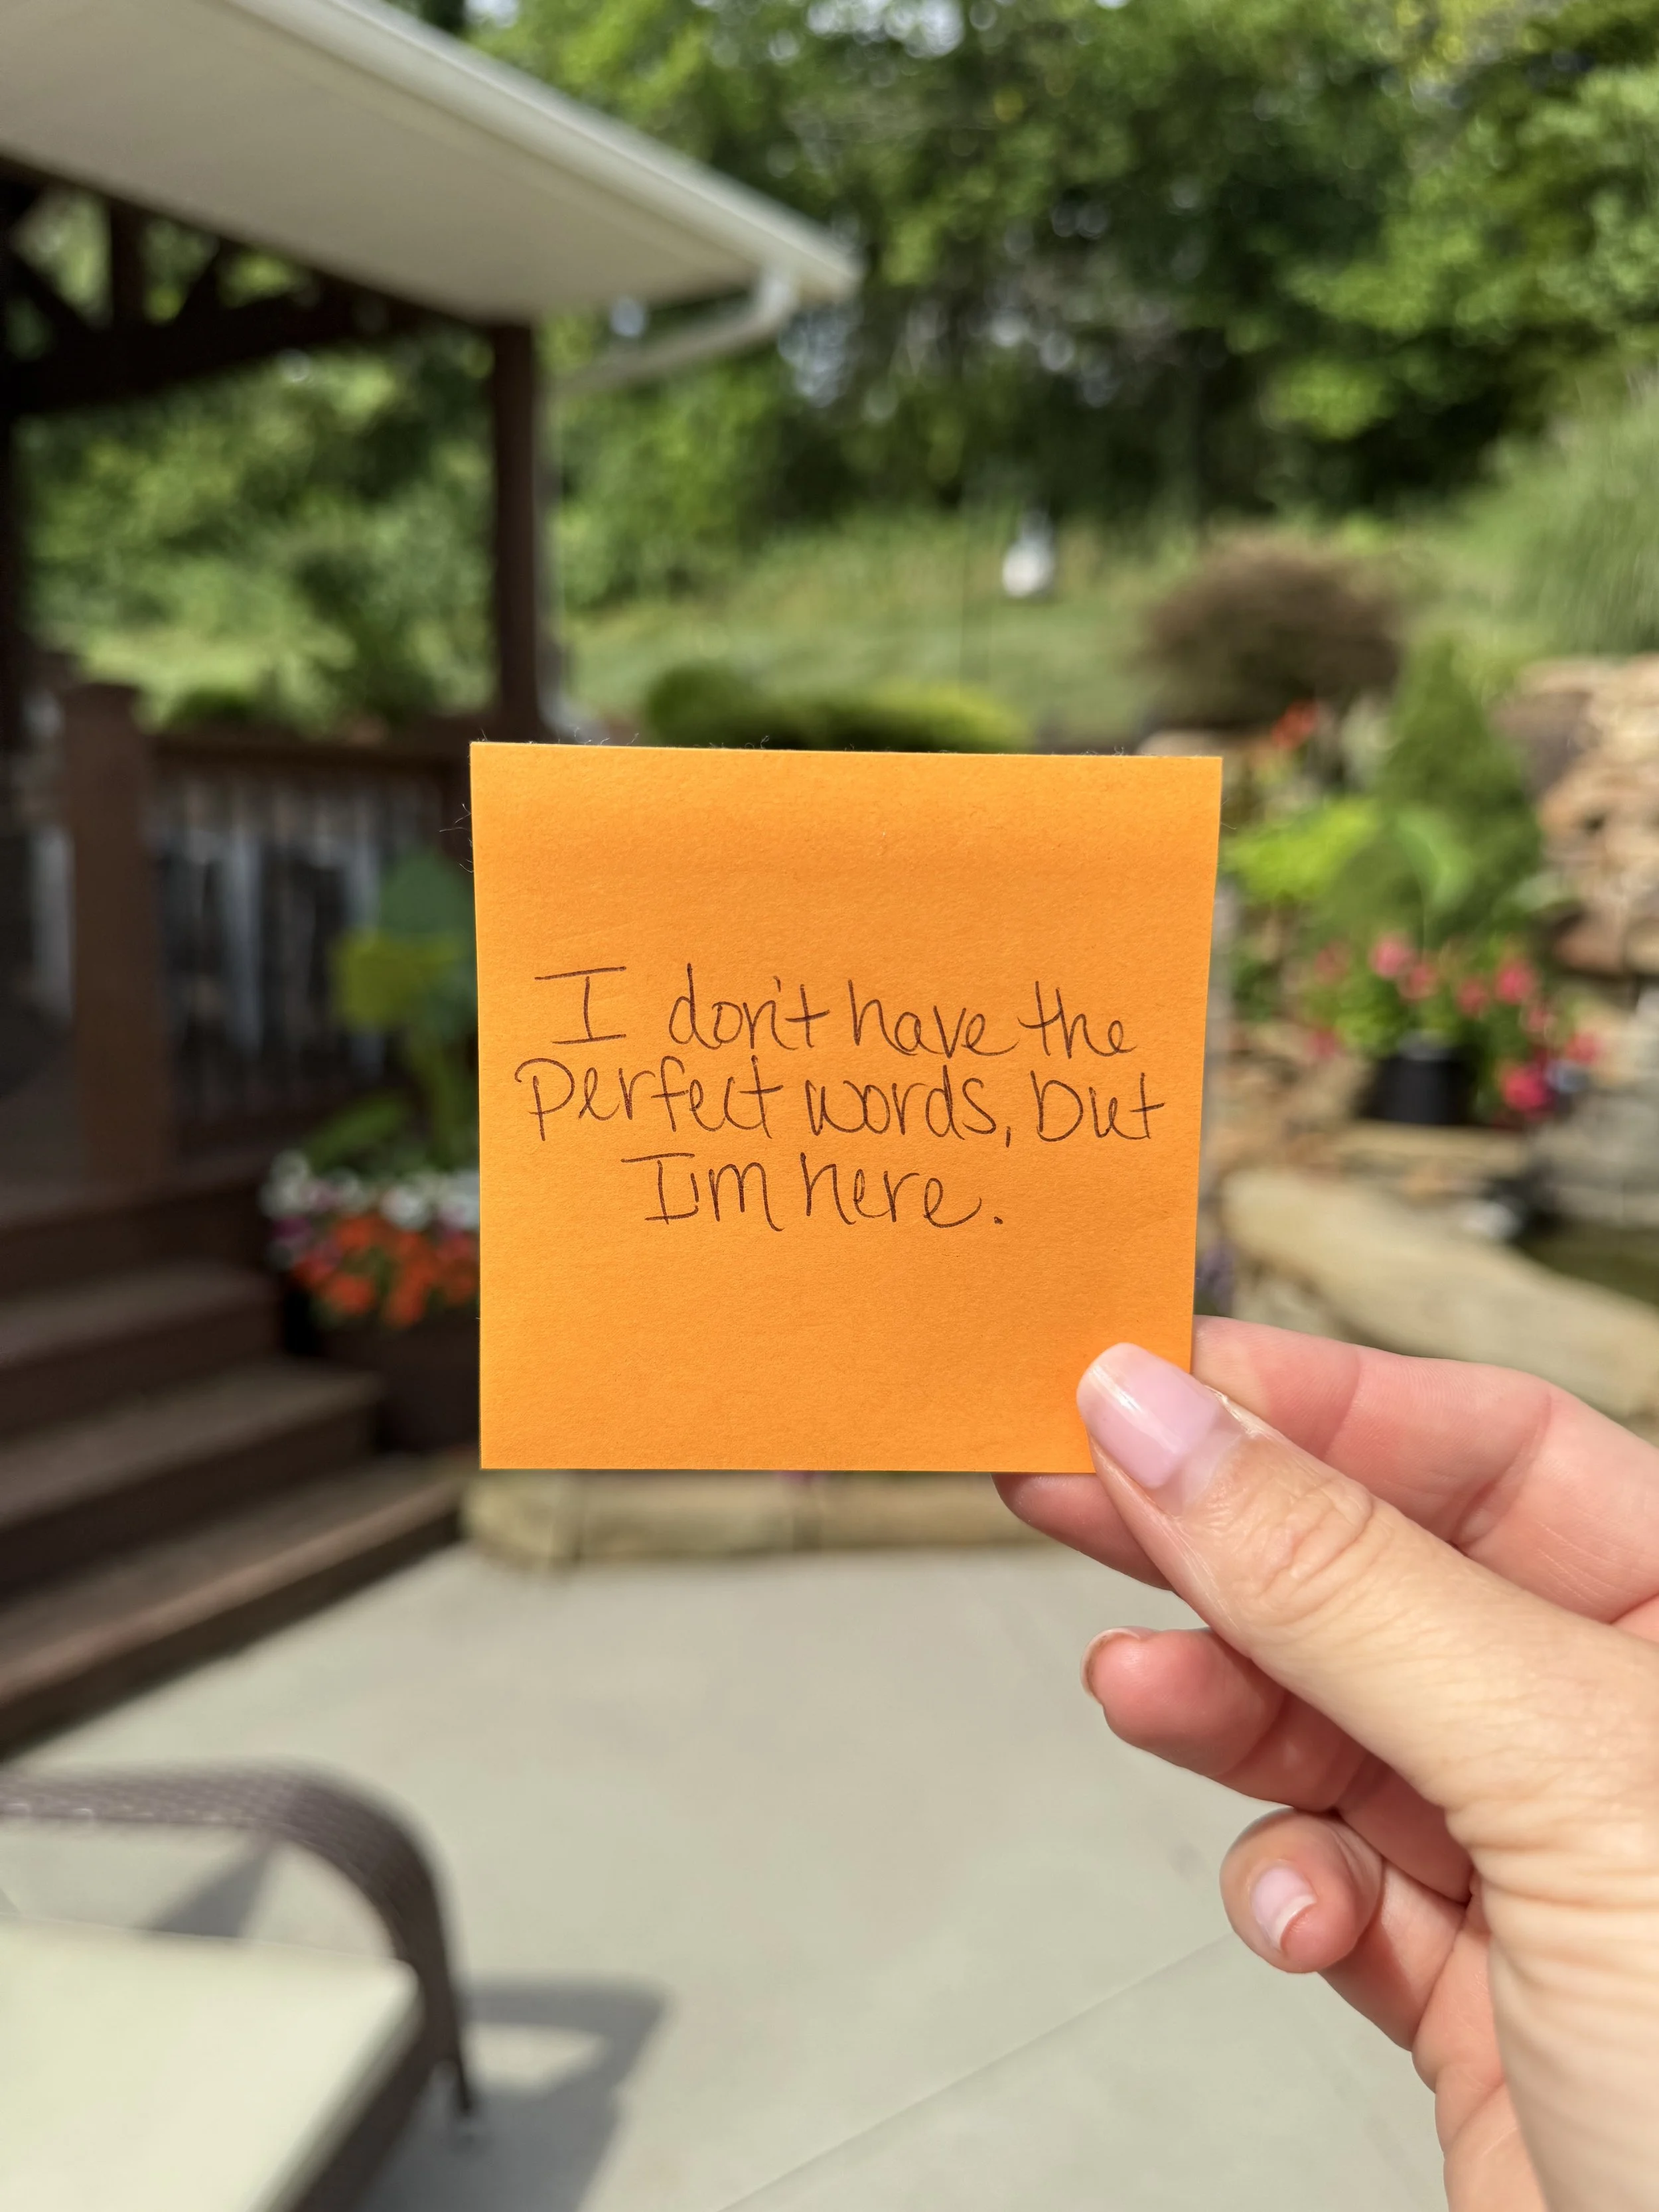 I don't have the
perfect words, but
I'm here.